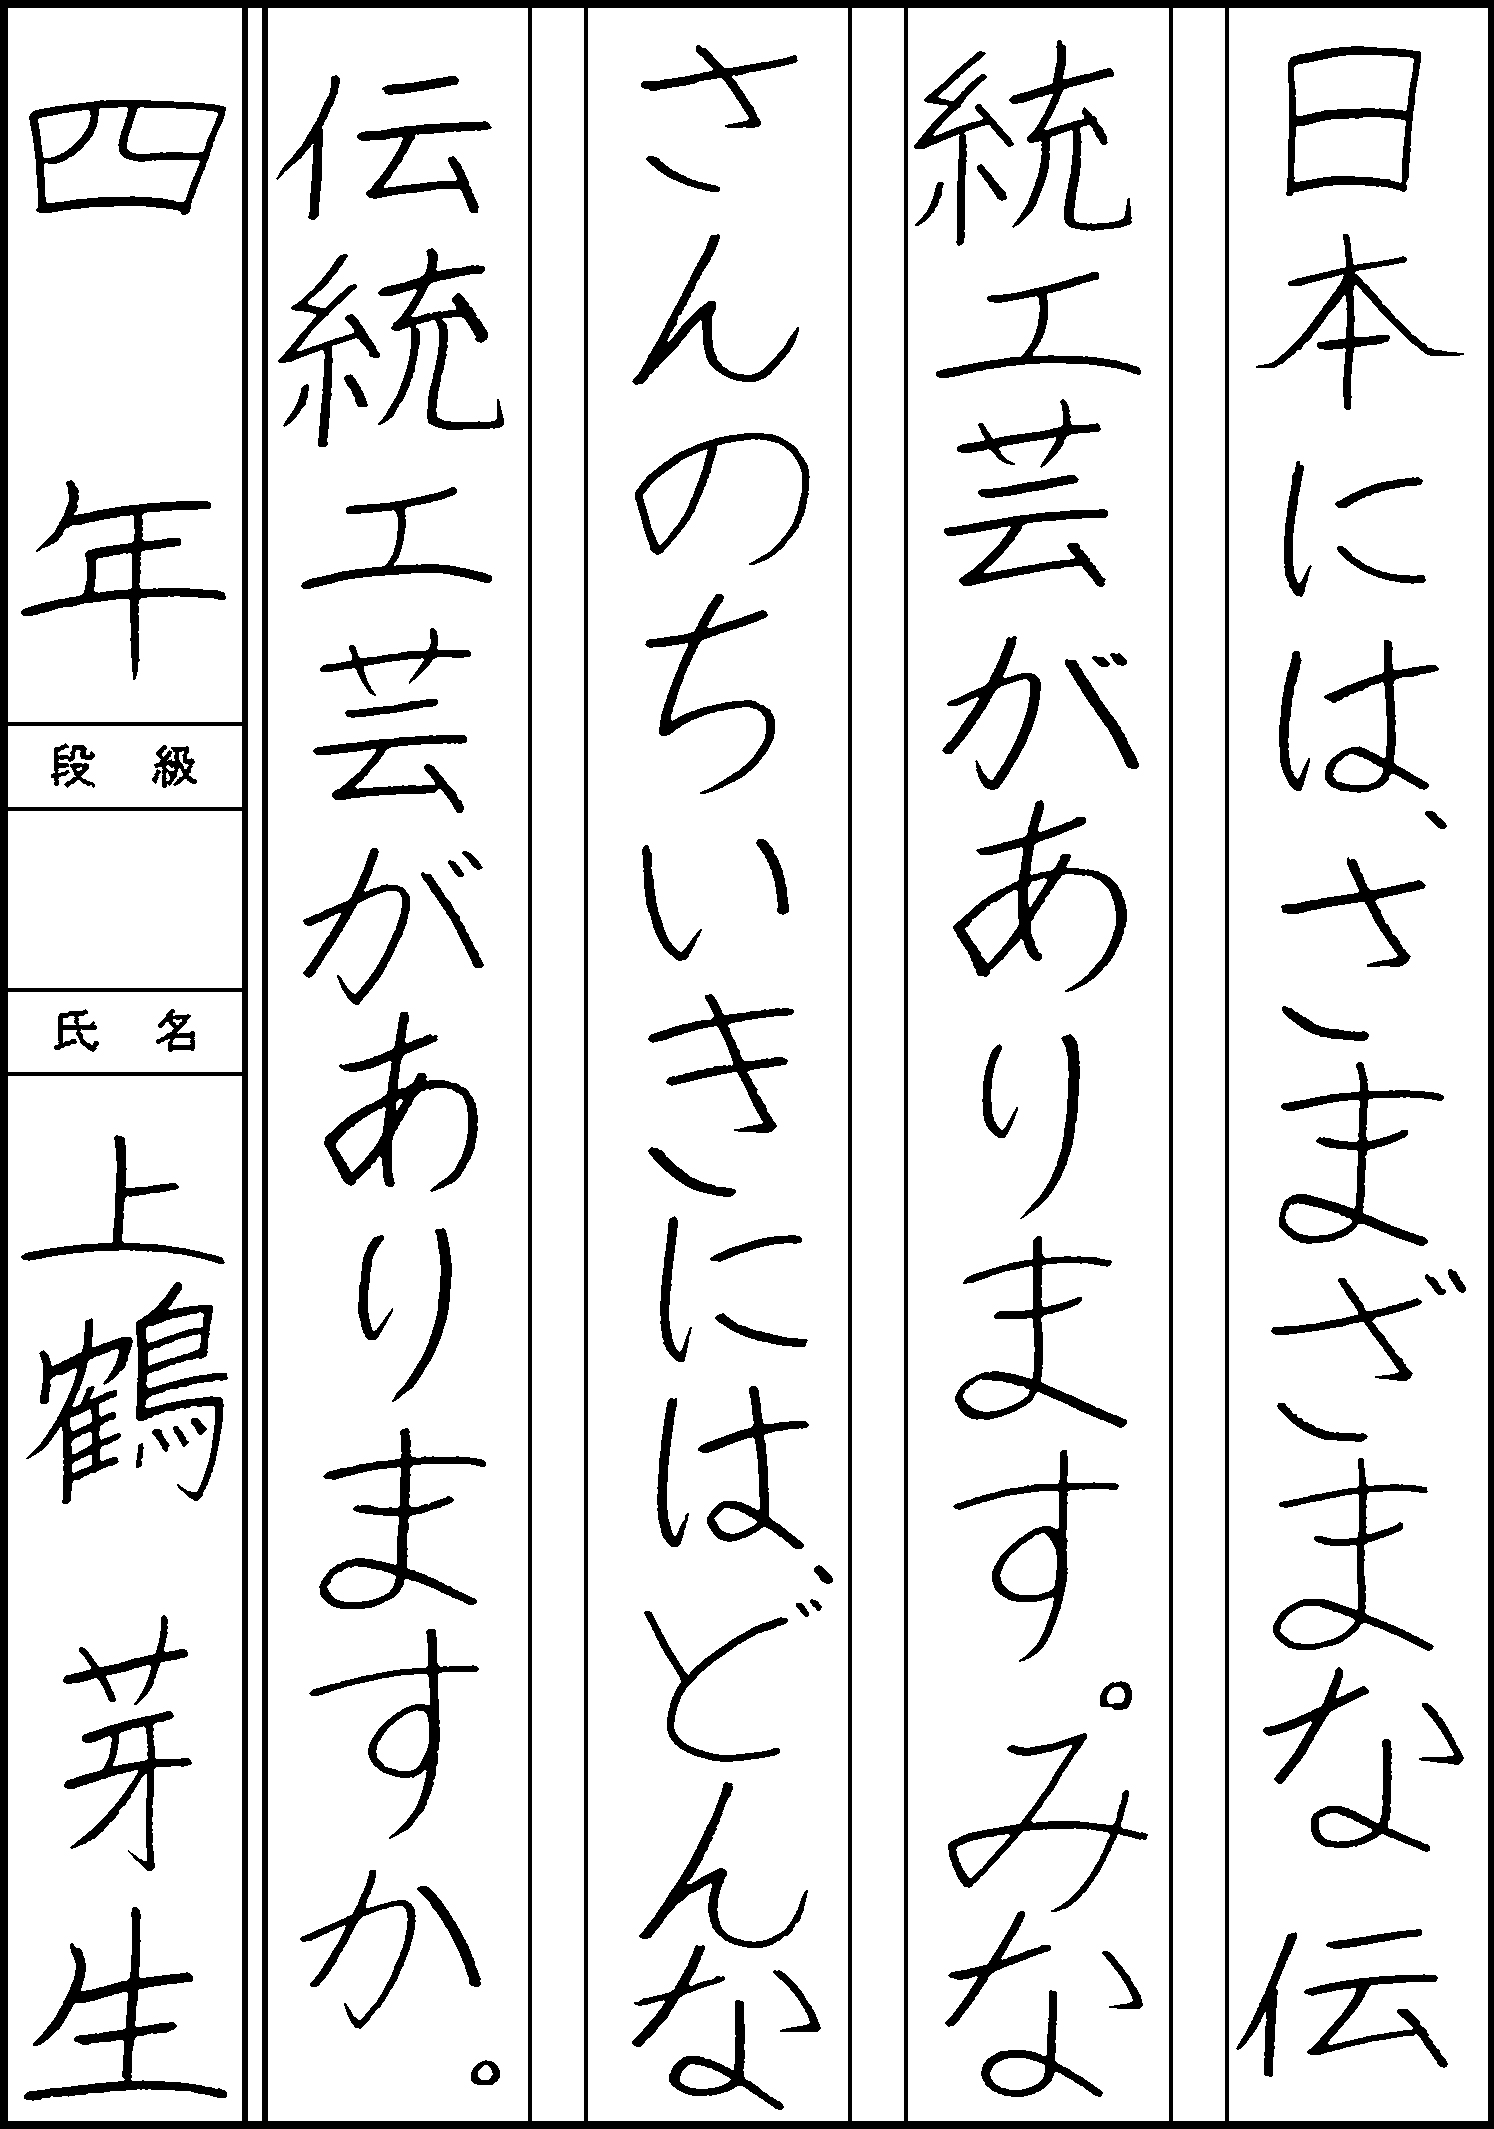 日本には、さまざまな伝
統工芸があります。みな
さんのちいきには、どんな
伝統工芸がありますか。
四年
段級
氏名
上鶴芽生